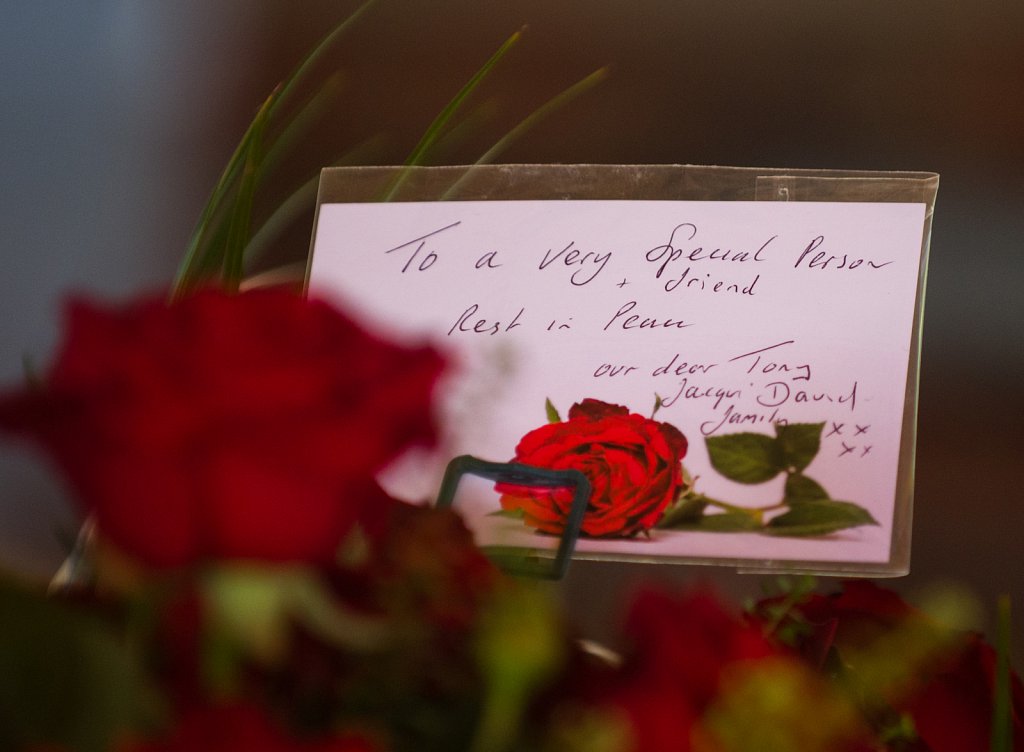 To a Very Special Person
+ friend
Rest in Peace
our dear Tony
Jacqui David
family x x
x x